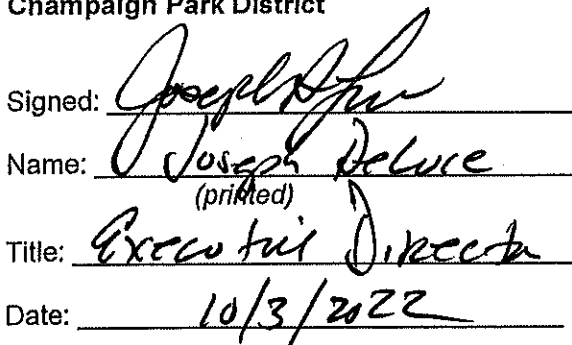 Champaign Park District
Signed: Joseph
Name: Joseph DeLuce
(printed)
Title: Executive Director
Date: 10/3/2022